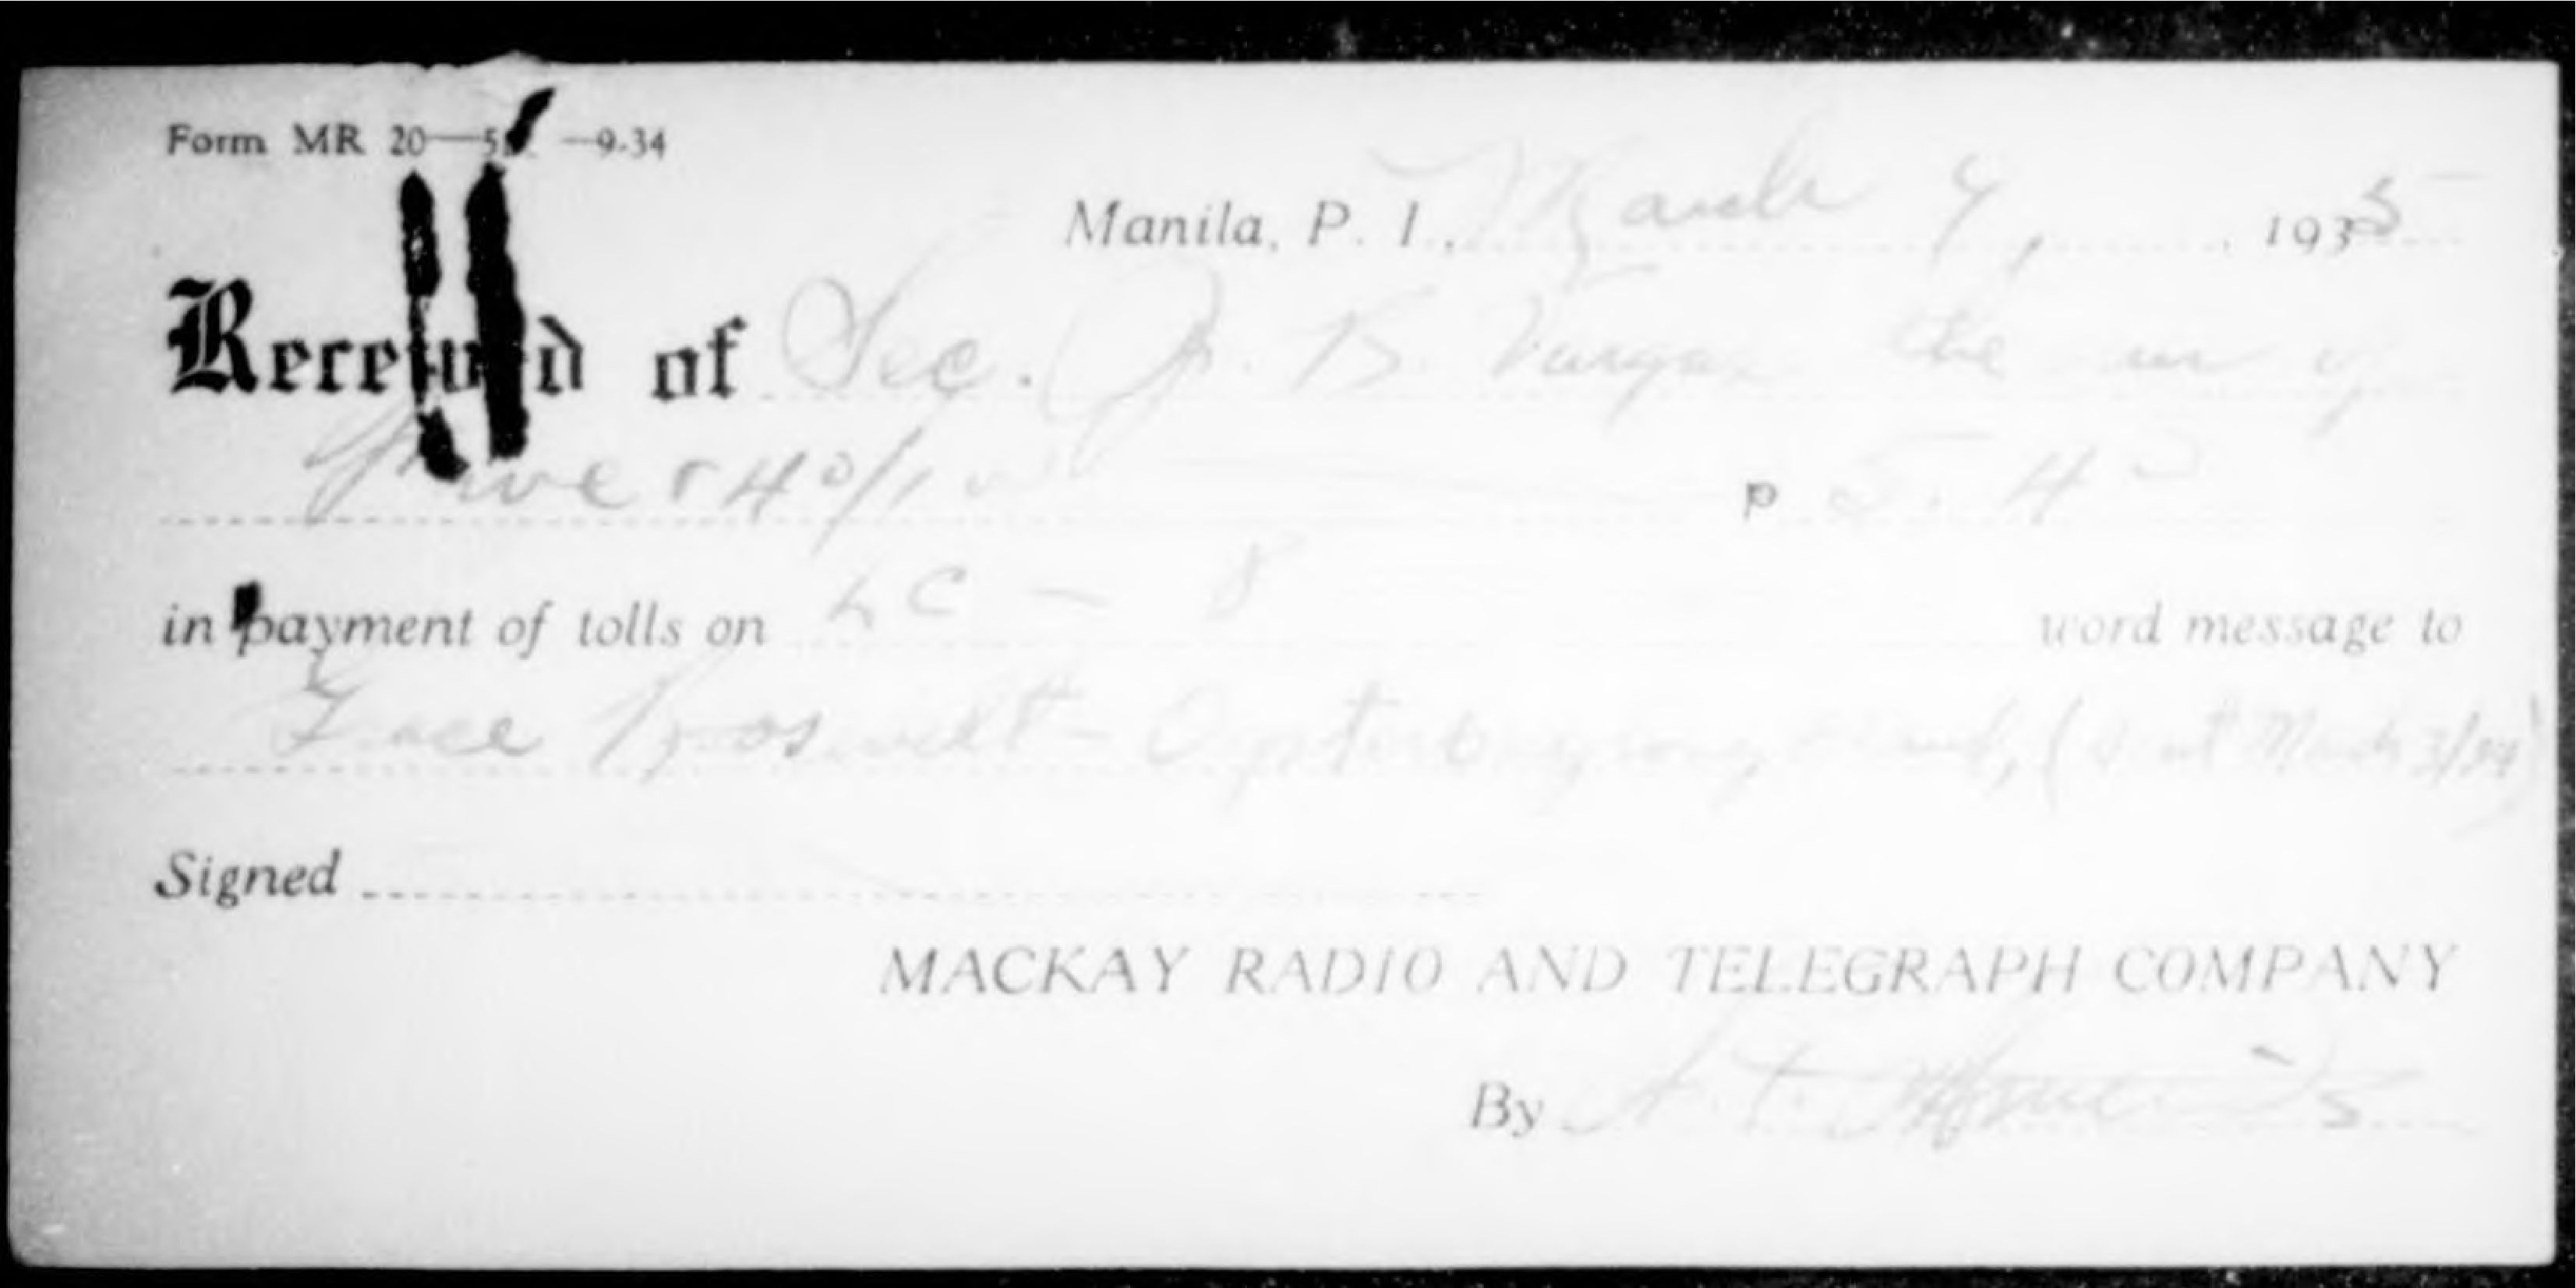 Form MR 20—5 —9-34
Manila, P. I., March 9, 1935
Received of Sec. J. B. Vargas the sum of
Five & 40/100 P 5.40
in payment of tolls on LC - 8 word message to
Grace Roosevelt - Oysterbay (Sent March 3/34)
Signed
MACKAY RADIO AND TELEGRAPH COMPANY
By